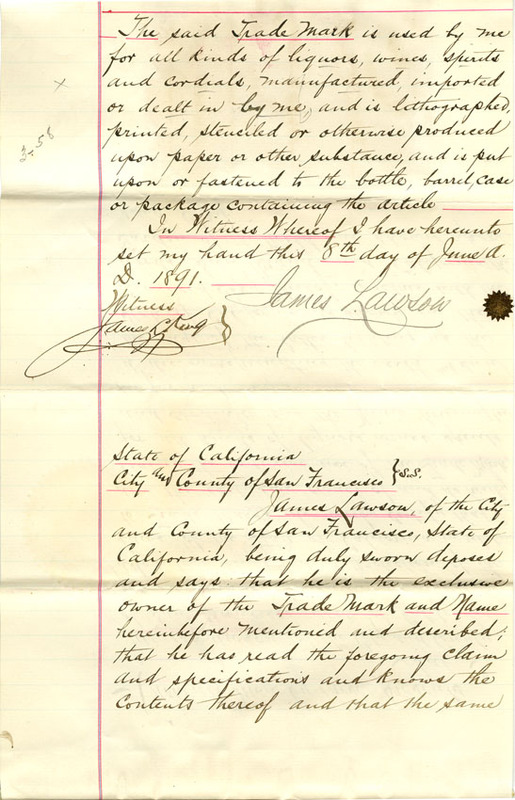 The said Trade Mark is used by me
for all kinds of liquors, wines, spirits
and cordials, manufactured, imported
or dealt in by me, and is lithographed,
printed, stenciled or otherwise produced
upon paper or other substance, and is put
upon or fastened to the bottle, barrel, case
or package containing the article
In Witness Whereof I have hereunto
set my hand this 8th day of June A.
D. 1891.
James Lawson
Witness
James
3-58
State of California
City and County of San Francisco } S.S.
James Lawson, of the City
and County of San Francisco, State of
California, being duly sworn deposes
and says: that he is the exclusive
owner of the Trade Mark and Name
hereinbefore mentioned and described;
that he has read the foregoing claim
and specifications and knows the
contents thereof and that the same